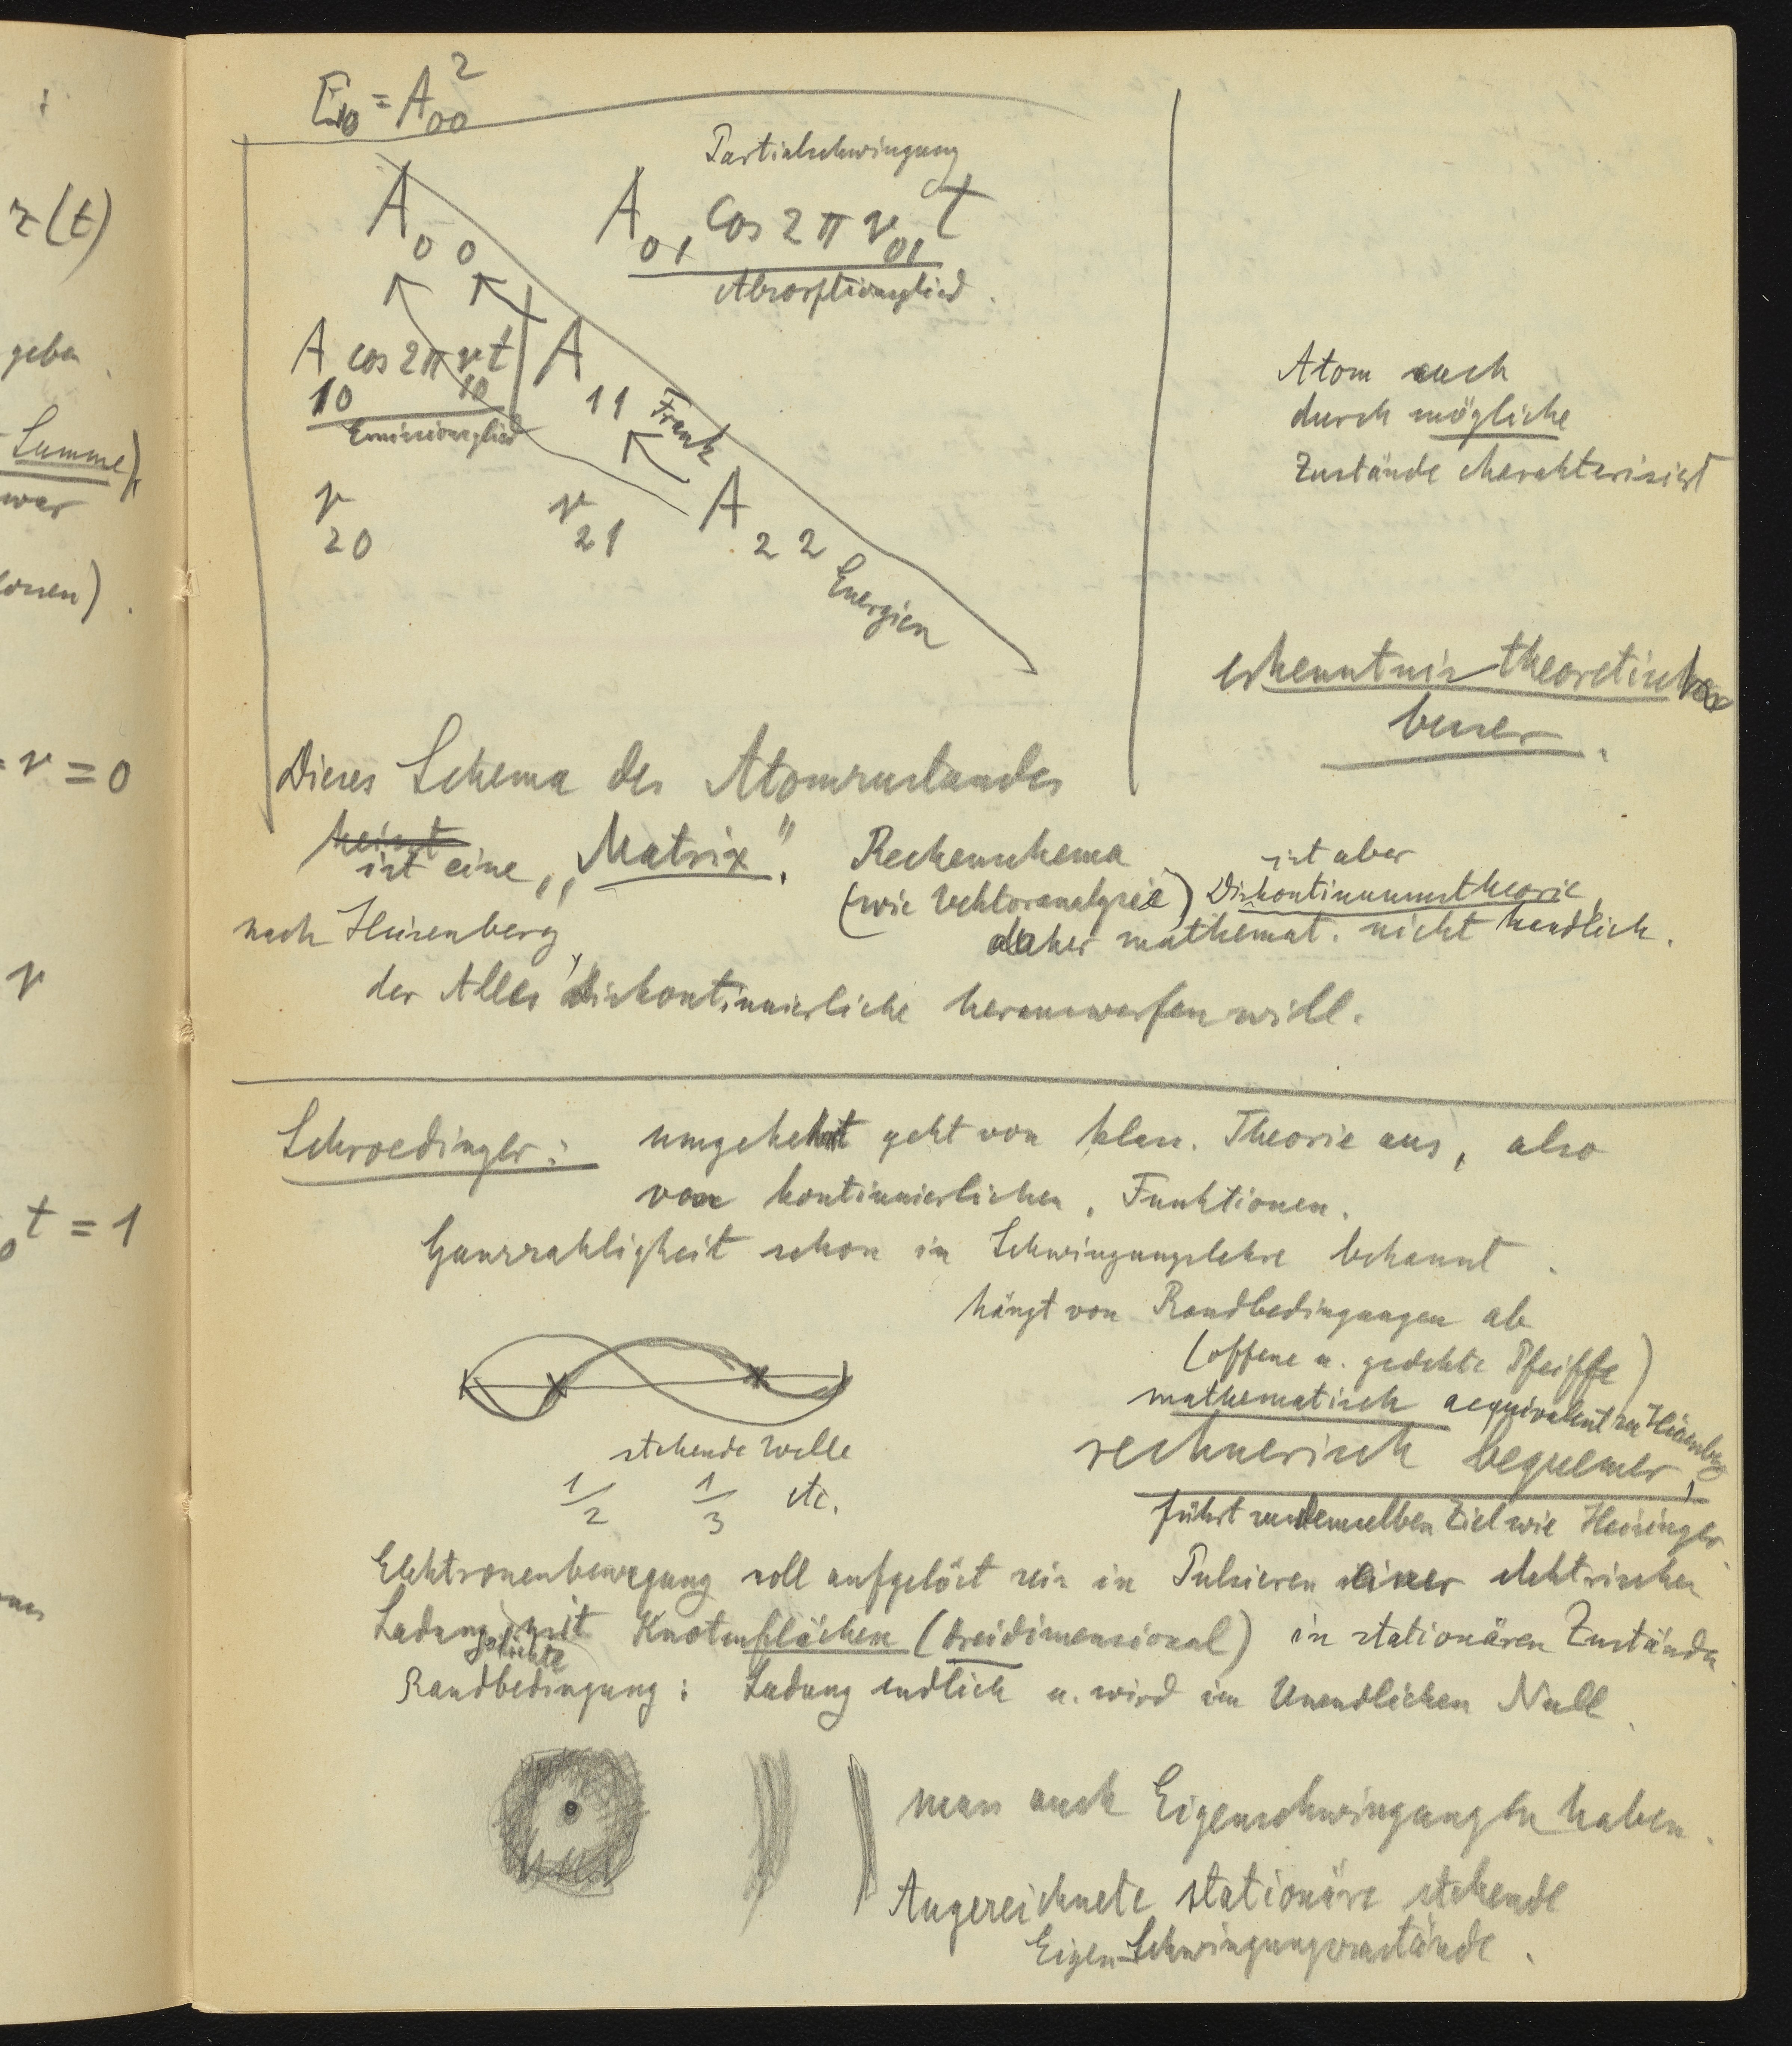 r(t)
geben
Summe)
war
ν = 0
ν
t = 1
E₀ = A₀₀²
Partialschwingung
A₀₀ A₀₁ cos 2π ν₀₁ t
Absorptionsglied
A₁₀ cos 2π ν₁₀ t A₁₁
Emissionsglied
Frank
ν₂₀ ν₂₁ A₂₂
Energien
Atom auch
durch mögliche
Zustände charakterisiert
erkenntnistheoretisch
besser.
Dieses Schema des Atomzustandes
heisst
ist eine „Matrix".
Rechenschema
(wie Vektoranalysis)
ist aber
Diskontinuumstheorie,
daher mathemat. nicht handlich.
nach Heisenberg,
der Alles diskontinuierliche herauswerfen will.
Schroedinger: umgekehrt geht von klass. Theorie aus, also
von kontinuierlichen Funktionen.
Ganzzahligkeit schon in Schwingungslehre bekannt.
hängt von Randbedingungen ab
(offene u. gedekte Pfeiffe)
mathematisch aequivalent zu Heisenberg
rechnerisch bequemer,
führt zu demselben Ziel wie Heisinger.
stehende Welle
1/2 1/3 etc.
Elektronenbewegung soll aufgelöst sein in Pulsieren einer elektrischen
Ladungsdichte mit Knotenflächen (dreidimensional) in stationären Zuständen
Randbedingung: Ladung endlich u. wird im Unendlichen Null.
muss auch Eigenschwingungen haben.
Augezeichnete stationäre stehende
Eigen-Schwingungszustände.